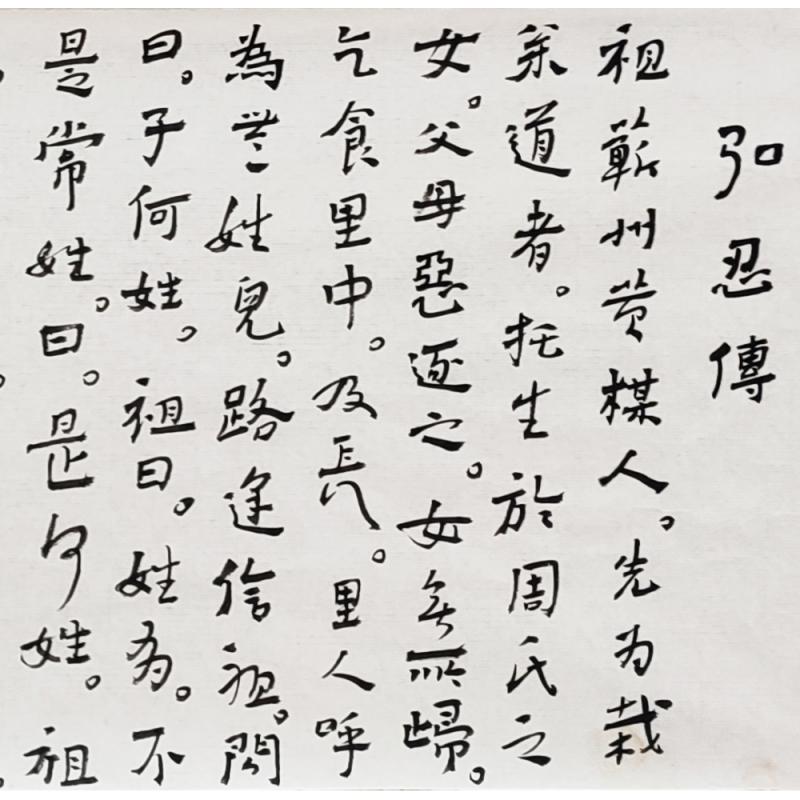 弘忍傳
祖蘄州黄楳人。先为栽
枀道者。托生於周氏之
女。父母惡逐之。女無所歸。
乞食里中。及長。里人呼
為無姓兒。路逢信祖。問
曰。子何姓。祖曰。姓有。不
是常姓。曰。是何姓。祖